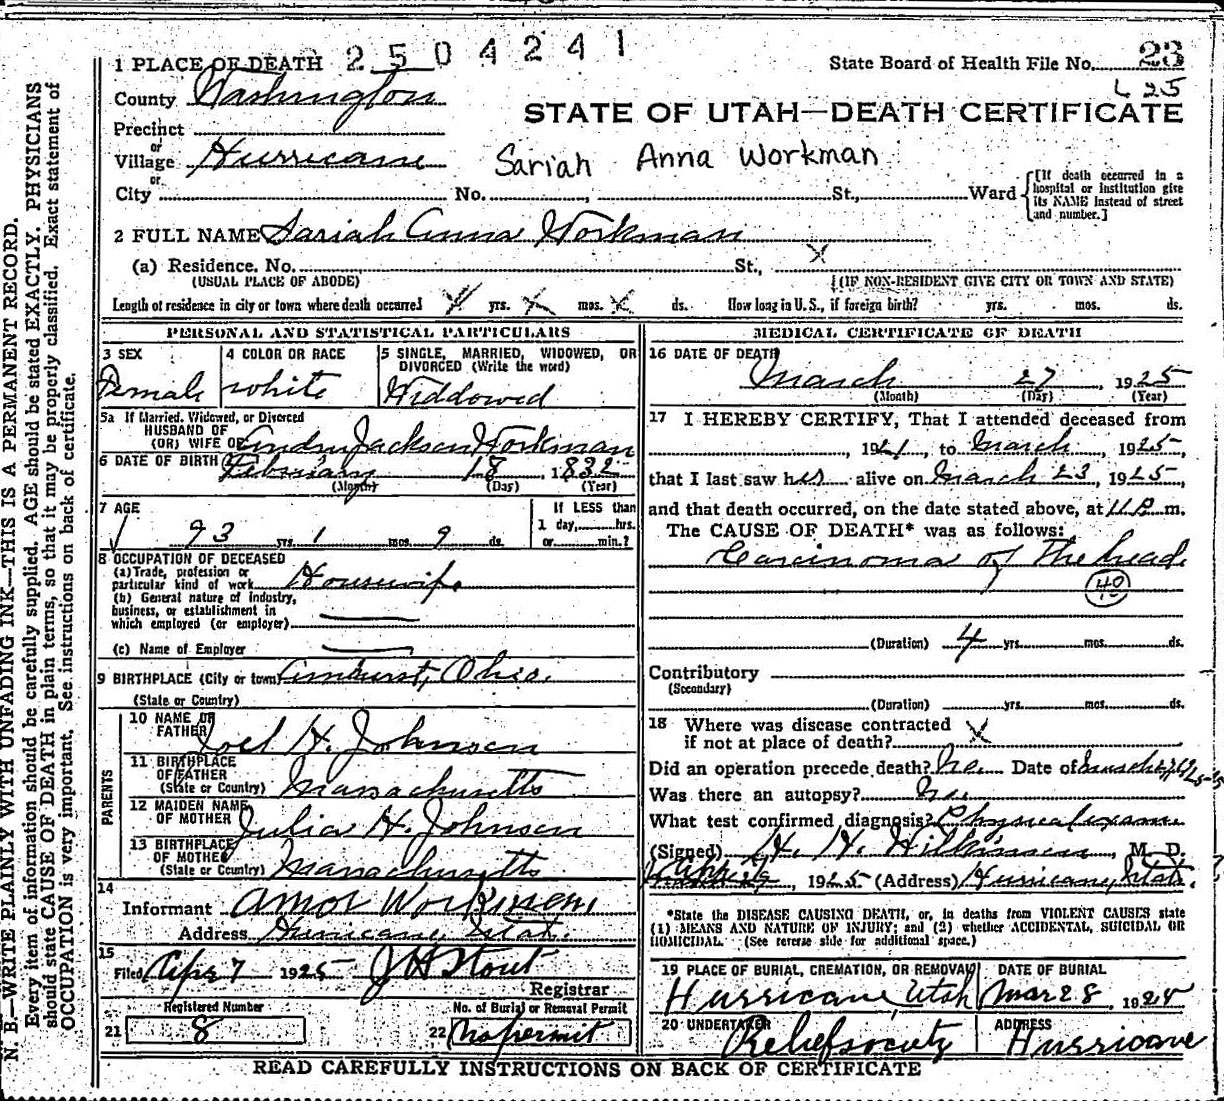 1 PLACE OF DEATH 2504241
State Board of Health File No. 23
L 25
County Washington
STATE OF UTAH—DEATH CERTIFICATE
Precinct
or
Village Hurricane
Sariah Anna Workman
or
City No. , St., Ward
[If death occurred in a hospital or institution give its NAME instead of street and number.]
2 FULL NAME Sariah Anna Workman
(a) Residence. No. St., X
(USUAL PLACE OF ABODE) (IF NON-RESIDENT GIVE CITY OR TOWN AND STATE)
Length of residence in city or town where death occurred yrs. X mos. X ds. How long in U.S., if foreign birth? yrs. mos. ds.
PERSONAL AND STATISTICAL PARTICULARS
3 SEX
Female
4 COLOR OR RACE
white
5 SINGLE, MARRIED, WIDOWED, OR
DIVORCED (Write the word)
Widdowed
5a If Married, Widowed, or Divorced
HUSBAND OF
(OR) WIFE OF Andrew Jackson Workman
6 DATE OF BIRTH February 18 1832
(Month) (Day) (Year)
7 AGE
93 yrs. 1 mos. 9 ds.
If LESS than
1 day, hrs.
or min.?
8 OCCUPATION OF DECEASED
(a) Trade, profession or
particular kind of work Housewife
(b) General nature of industry,
business, or establishment in
which employed (or employer)
(c) Name of Employer
9 BIRTHPLACE (City or town) Amhurst, Ohio.
(State or Country)
PARENTS
10 NAME OF
FATHER Joel H. Johnson
11 BIRTHPLACE
OF FATHER
(State or Country) Massachusetts
12 MAIDEN NAME
OF MOTHER Julia H. Johnson
13 BIRTHPLACE
OF MOTHER
(State or Country) Massachusetts
14
Informant Amos Workman
Address Hurricane, Utah.
15
Filed Apr 7 1925 J H Stout
Registrar
Registered Number
21 8
No. of Burial or Removal Permit
22 No permit
MEDICAL CERTIFICATE OF DEATH
16 DATE OF DEATH
March 27, 1925
(Month) (Day) (Year)
17 I HEREBY CERTIFY, That I attended deceased from
, 1921, to March, 1925,
that I last saw her alive on March 23, 1925,
and that death occurred, on the date stated above, at 11 P m.
The CAUSE OF DEATH* was as follows:
Carcinoma of the head
40
(Duration) 4 yrs. mos. ds.
Contributory
(Secondary)
(Duration) yrs. mos. ds.
18 Where was disease contracted
if not at place of death? X
Did an operation precede death? No Date of
Was there an autopsy? No
What test confirmed diagnosis? Physical exam
(Signed) H. H. Wilkinson, M. D.
, 1925 (Address) Hurricane, Utah.
*State the DISEASE CAUSING DEATH, or, in deaths from VIOLENT CAUSES state
(1) MEANS AND NATURE OF INJURY; and (2) whether ACCIDENTAL, SUICIDAL OR
HOMICIDAL. (See reverse side for additional space.)
19 PLACE OF BURIAL, CREMATION, OR REMOVAL
Hurricane, Utah
DATE OF BURIAL
Mar 28, 1925
20 UNDERTAKER
Relief society
ADDRESS
Hurricane
READ CAREFULLY INSTRUCTIONS ON BACK OF CERTIFICATE
N. B.—WRITE PLAINLY WITH UNFADING INK—THIS IS A PERMANENT RECORD.
Every item of information should be carefully supplied. AGE should be stated EXACTLY. PHYSICIANS
should state CAUSE OF DEATH in plain terms, so that it may be properly classified. Exact statement of
OCCUPATION is very important. See instructions on back of certificate.